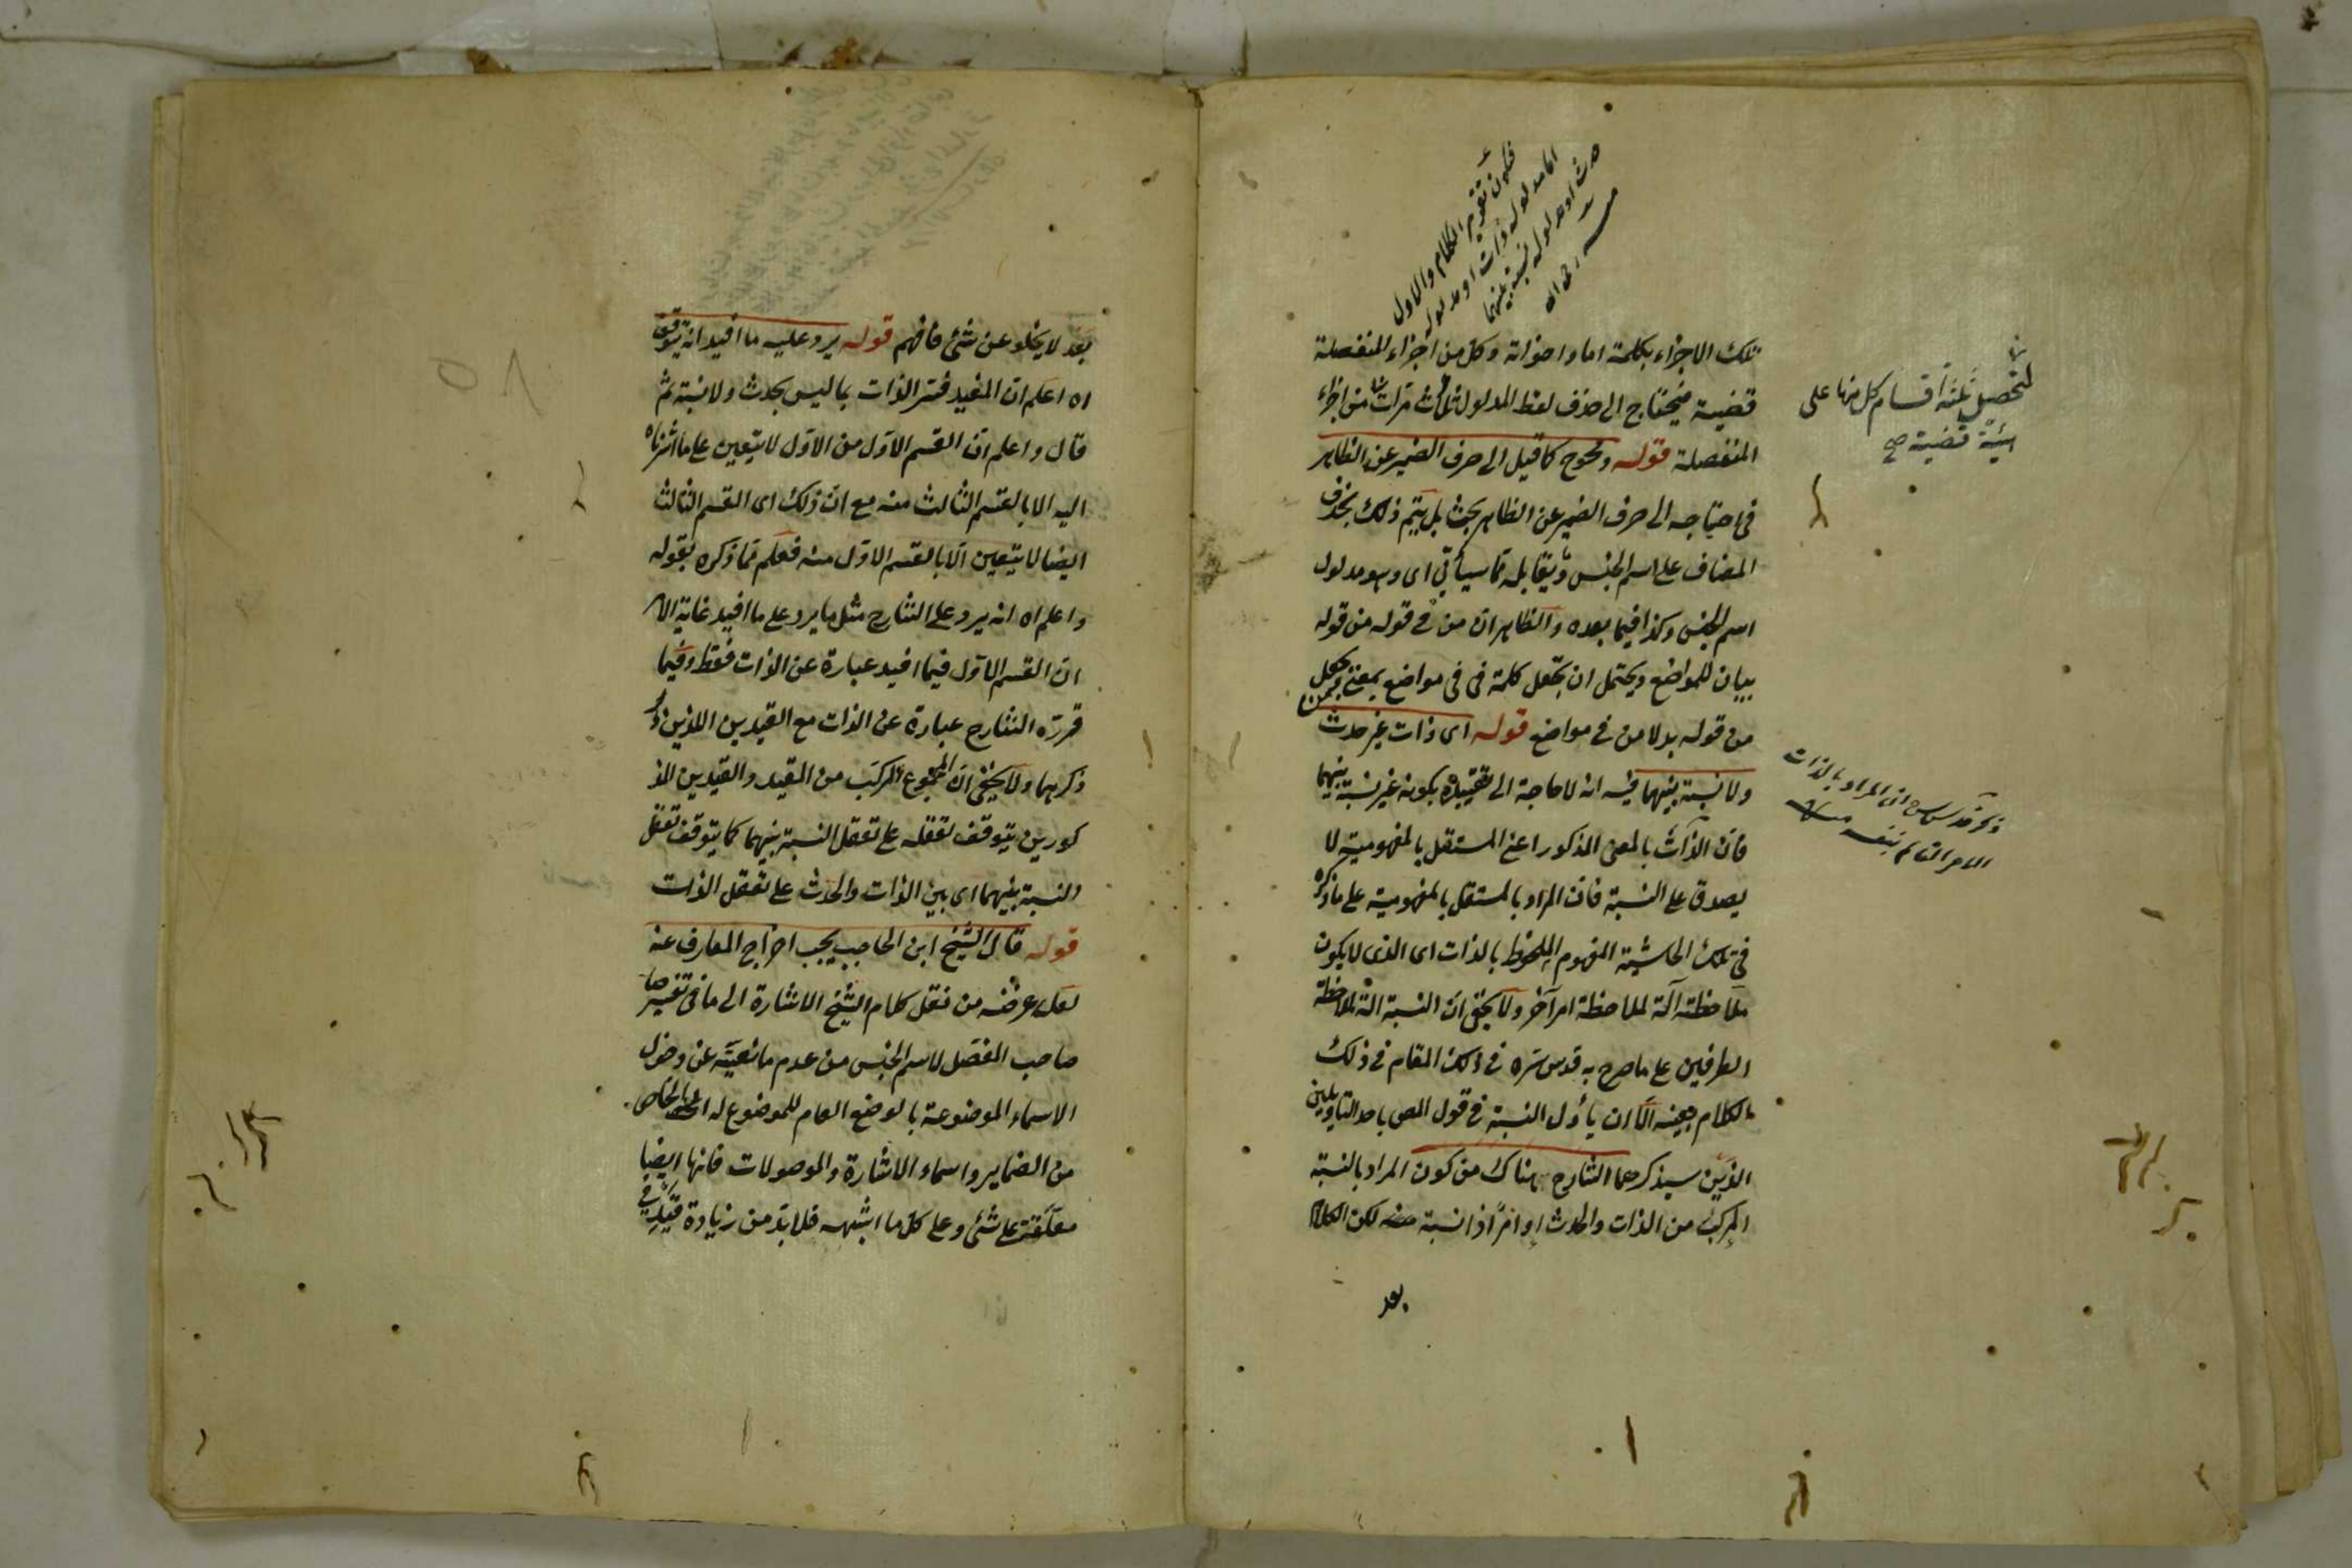 تلك الاجزاء بكلمة اما واخواته وكل من اجزاء المنفصلة
قضية فيحتاج الى حذف لفظ المدلول ثلاث مرات من اجزاء
المنفصلة قوله ويحوج كما قيل الى صرف الضمير عن الظاهر
فى احتياجه الى صرف الضمير عن الظاهر بحث بل يتم ذلك بحذف
المضاف على اسم الجنس ويقابله مما سيأتى اى وهو مدلول
اسم الجنس وكذا فيما بعده والظاهر ان من فى قوله من قوله
بيان للمواضع ويحتمل ان تجعل كلمة فى فى مواضع بمعنى من
من قوله بدلا من فى مواضع قوله اى ذات غير حدث
ولا نسبة بينهما فيه انه لا حاجة الى تقييده بكونه غير نسبة بينهما
فان الذات بالمعنى المذكور اعنى المستقل بالمفهومية لا
يصدق على النسبة فان المراد بالمستقل بالمفهومية على ما ذكره
فى تلك الحاشية المفهوم الملحوظ بالذات اى الذى لا يكون
ملاحظته آلة لملاحظة امر آخر ولا يخفى ان النسبة آلة لملاحظة
الطرفين على ما صرح به قدس سره فى ذلك المقام فى ذلك
الكلام بعينه الا ان يأول النسبة فى قول المص باحد التاويلين
الذين سيذكرهما الشارح هناك من كون المراد بالنسبة
المركب من الذات والحدث او امرا ذا نسبة لكن الكلام
بعد
لتحصيل ثلثة اقسام كل منها على
هيئة قضية صح
ان المراد بالذات
الامر القائم بنفسه
تقويم الكلام والاول
اما مدلوله ذات او مدلوله
حدث او مدلوله نسبة بينهما
بعد لا يخلو عن شئ فافهم قوله يرد عليه ما افيد انه يتوقف
اه اعلم ان المفيد فسر الذات بما ليس بحدث ولا نسبة ثم
قال واعلم ان القسم الاول من الاول لا يتعين على ما اشرنا
اليه الا بالقسم الثالث منه مع ان ذلك اى القسم الثالث
ايضا لا يتعين الا بالقسم الاول منه فعلم مما ذكره بقوله
واعلم اه انه يرد على الشارح مثل ما يرد على ما افيد غاية الامر
ان القسم الاول فيما افيد عبارة عن الذات فقط وفيما
قرره الشارح عبارة عن الذات مع القيدين اللذين
ذكرهما ولا يخفى ان المجموع المركب من المقيد والقيدين المذ
كورين يتوقف تعقله على تعقل النسبة بينهما كما يتوقف تعقل
النسبة بينهما اى بين الذات والحدث على تعقل الذات
قوله قال الشيخ ابن الحاجب يجب اخراج المعارف عنه
لعل غرضه من نقل كلام الشيخ الاشارة الى ما فى تفسير
صاحب المفصل لاسم الجنس من عدم مانعيته عن دخول
الاسماء الموضوعة بالوضع العام للموضوع له الخاص
من الضماير واسماء الاشارة والموصولات فانها ايضا
معلقة على شئ وعلى كل ما اشبهه فلا بد من زيادة قيد فى